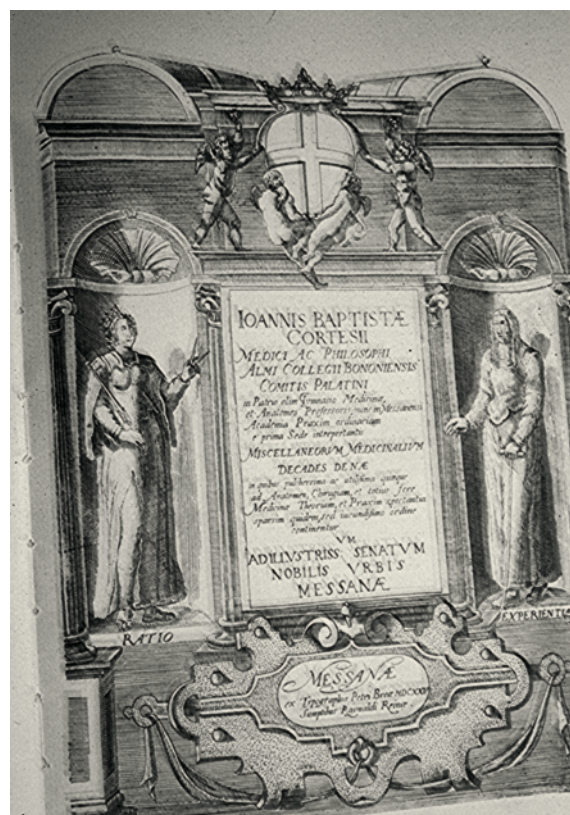 IOANNIS BAPTISTÆ
CORTESII
MEDICI AC PHILOSOPHI
ALMI COLLEGII BONONIENSIS
COMITIS PALATINI
in Patrio olim Gymnasio Medicinæ,
et Anatomes Professoris, nunc in Messanensi
Academia Praxim ordinariam
e prima Sede interpretantis
MISCELLANEORVM MEDICINALIVM
DECADES DENÆ
in quibus pulcherrima ac utilissima quæque
ad Anatomen, Chirurgiam, et totius fere
Medicinæ Theoriam, et Praxim spectantia
sparsim quidem, sed iucundissimo ordine
continentur
VM
AD ILLVSTRISS. SENATVM
NOBILIS VRBIS
MESSANÆ
RATIO
EXPERIENTIA
MESSANÆ
ex Typographia Petri Breæ MDCXXV
Sumptibus Raynaldi